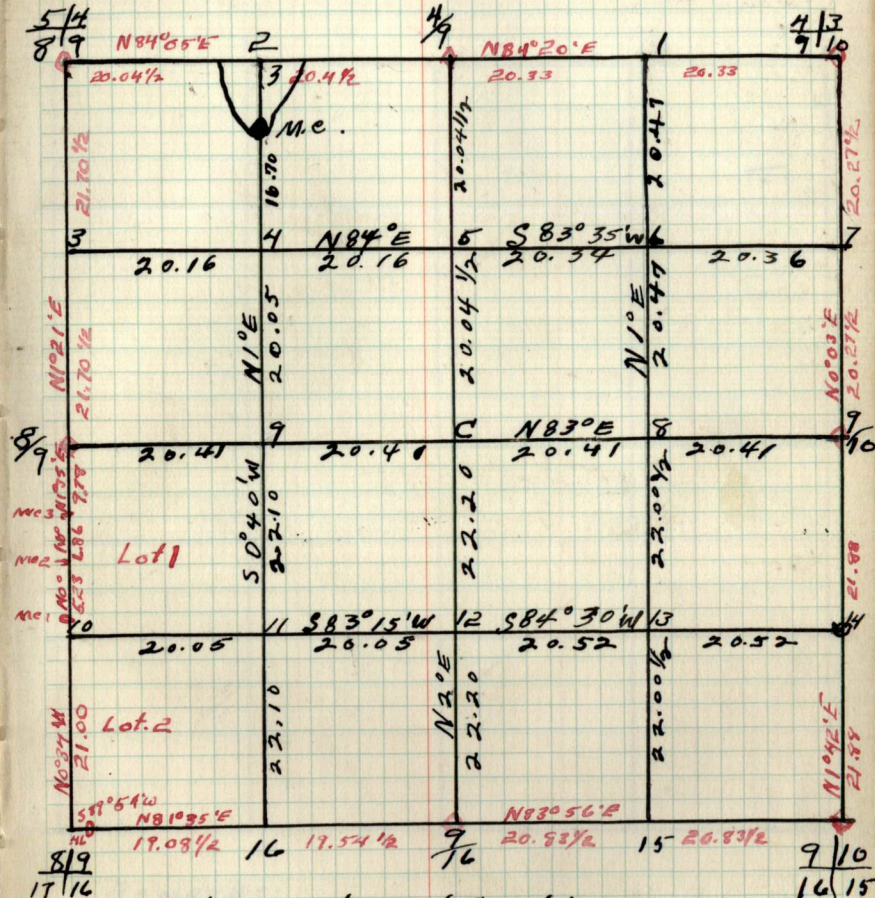 5|4 4/9 4|3
8|9 N84°05'E 2 N84°20'E 1 9|10
20.04½ 3 20.4½ 20.33 20.33
M.C.
21.70½ 16.70 20.04½ 20.47 20.27½
3 4 N84°E 5 S83°35'W 6 7
20.16 20.16 20.34 20.36
N1°21'E 21.70½ N1°E 20.05 20.04½ N1°E 20.47 N0°03'E 20.27½
8/9 9 C N83°E 8 9/10
20.41 20.41 20.41 20.41
MC3 N1°35'E 7.78
MC2 N0° 6.86 Lot 1 S0°40'W 22.10 22.20 22.00½ 21.88
MC1 N0° 6.23
10 11 S83°15'W 12 S84°30'W 13 14
20.05 20.05 20.52 20.52
N0°34'W 21.00 Lot.2 22.10 N2°E 22.20 22.00½ N1°42'E 21.89
S89°54'W
N81°35'E N83°56'E
19.08½ 16 19.54½ 9/16 20.83½ 15 20.83½
8|9 9|10
17|16 16|15